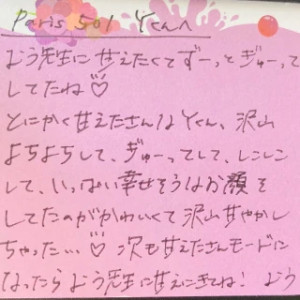 Paris 501 Yくんへ
よう先生に甘えたくてずーっとぎゅーって
してたね♡
とにかく甘えたさんなYくん、沢山
よちよちして、ぎゅーってして、シコシコ
して、いっぱい幸せそうなお顔を
してたのがかわいくて沢山甘やかし
ちゃった…♡ 次も甘えたさんモードに
なったらよう先生に甘えにきてね! よう